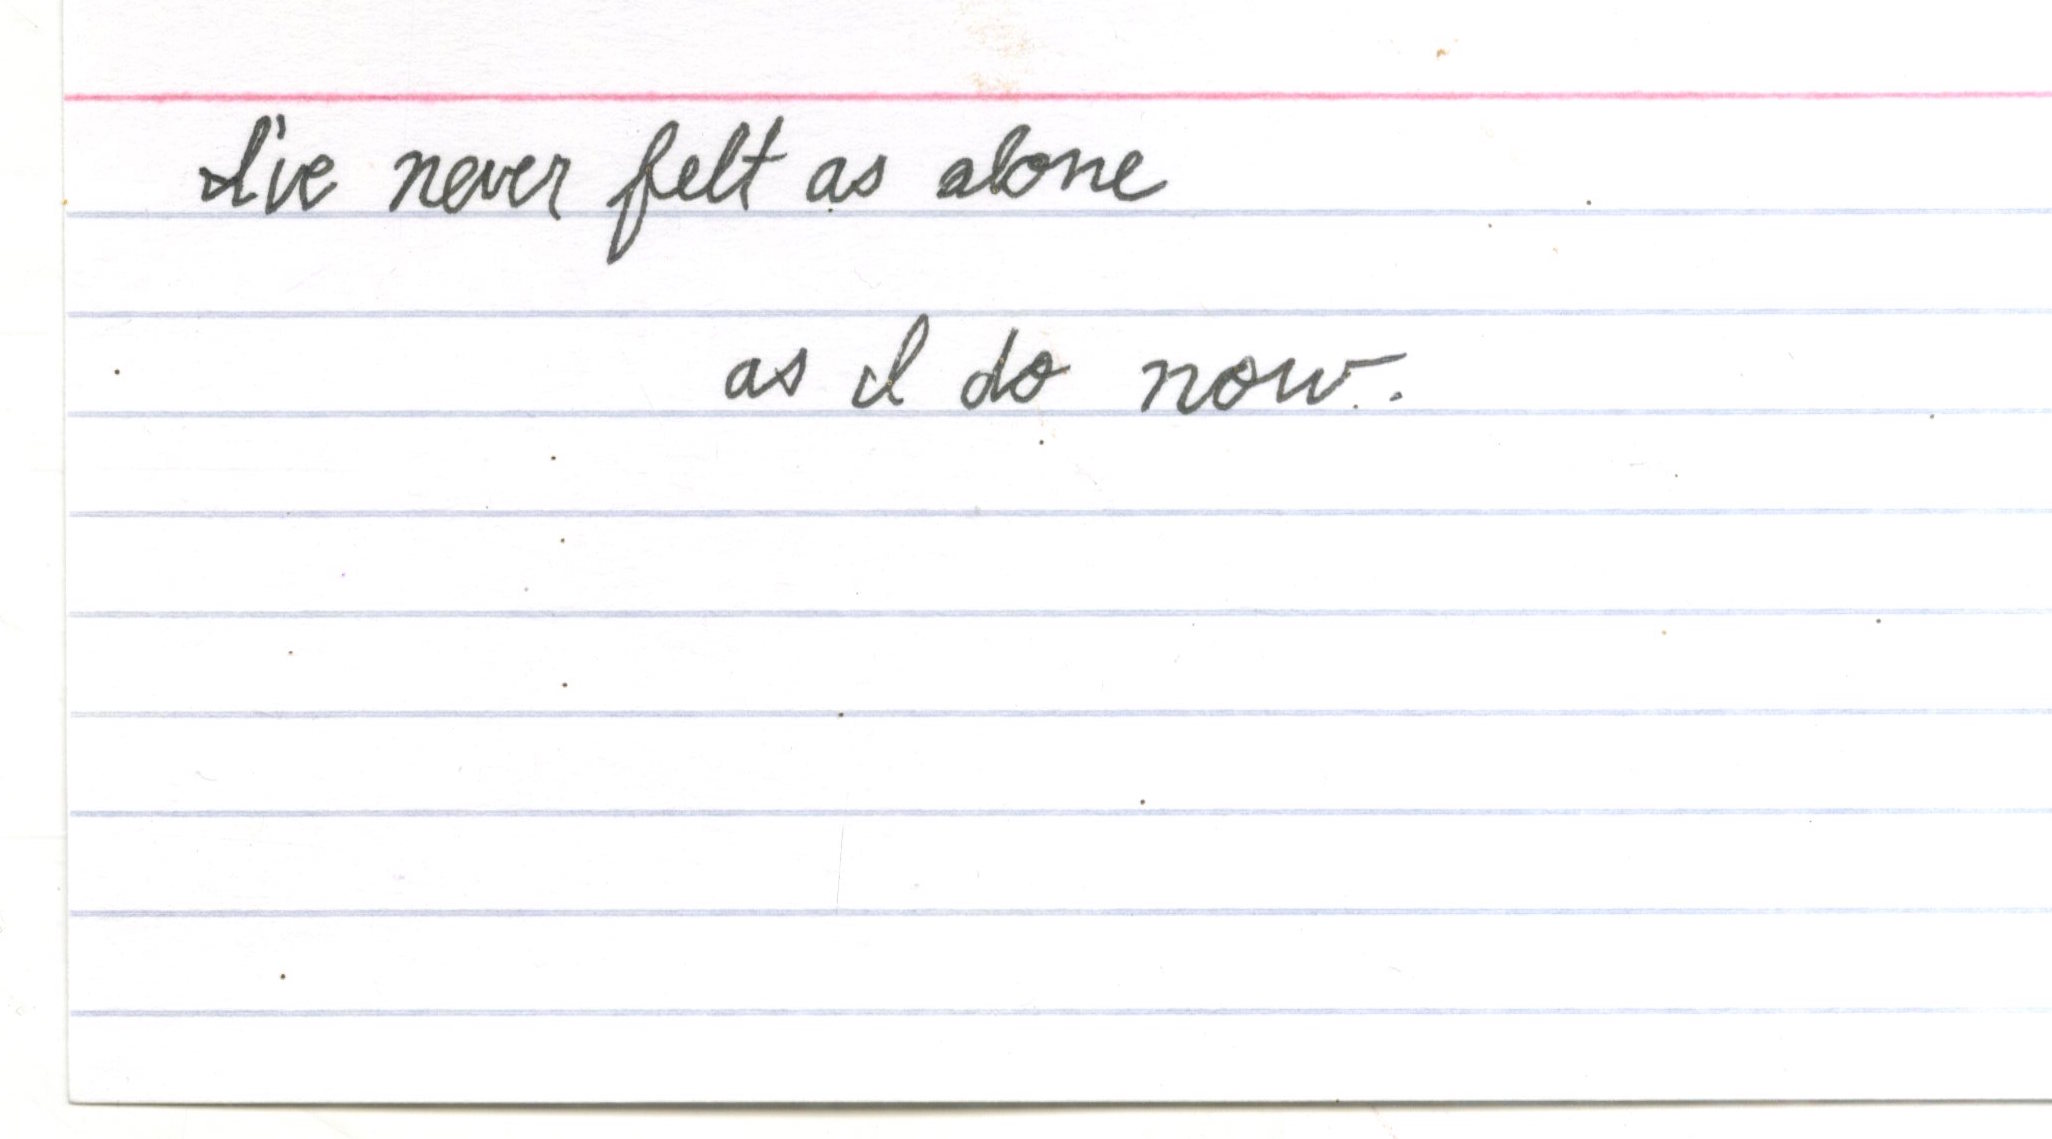 I've never felt as alone
as I do now.